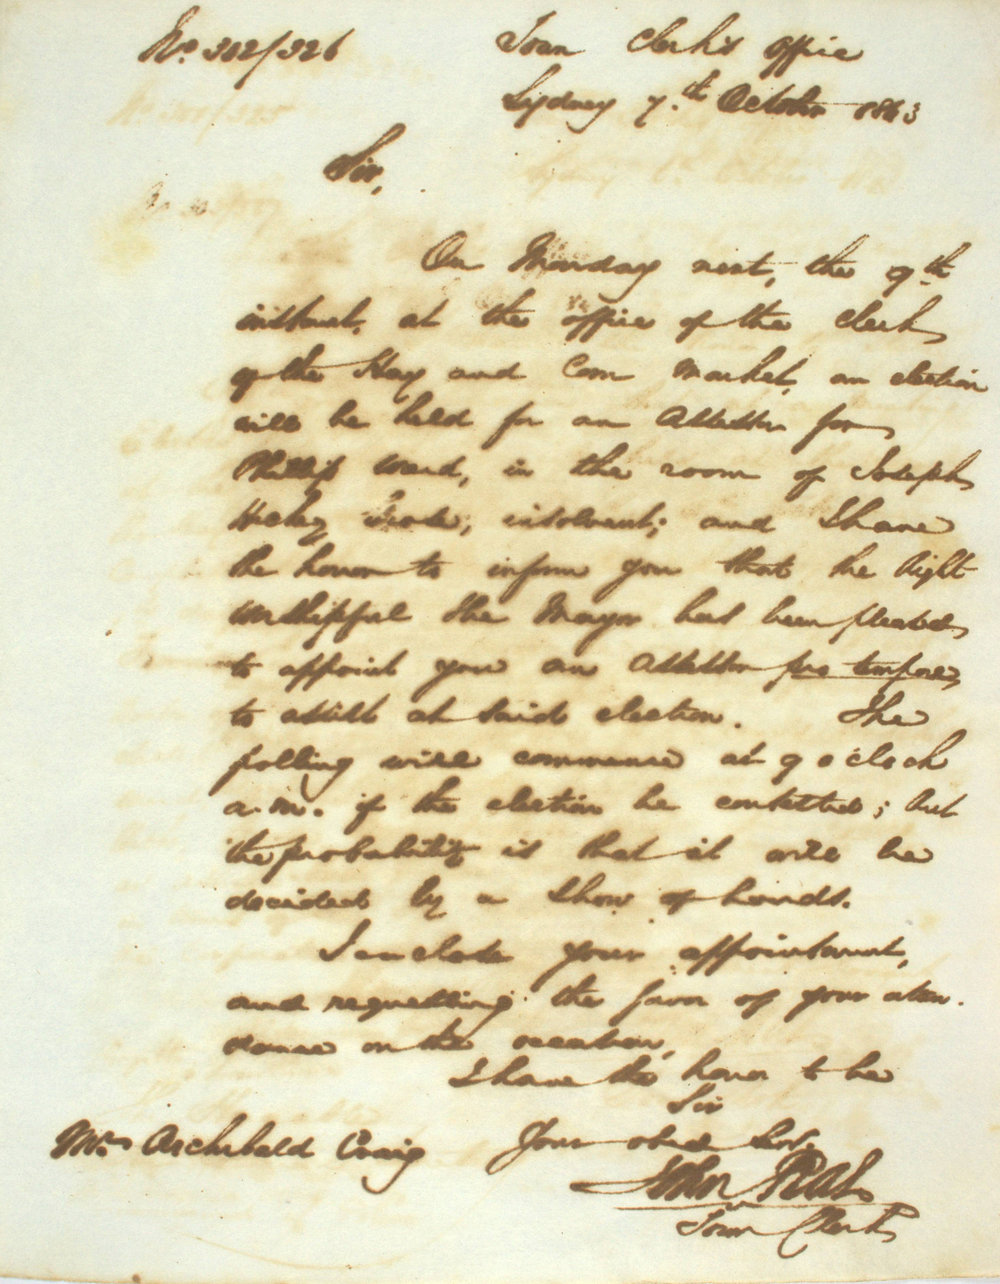 No. 302/326
Town Clerk's Office
Sydney 7.th October 1843
Sir,
On Monday next, the 9th
instant, at the office of the Clerk
of the Hay and Corn Market, an election
will be held for an Assessor for
Phillip Ward, in the room of Joseph
Hickey Grose, insolvent; and I have
the honor to inform you that the Right
Worshipful the Mayor has been pleased
to appoint you an Assessor pro tempore
to assist at said election. The
polling will commence at 9 o'clock
a.m. if the election be contested; but
the probability is that it will be
decided by a show of hands.
I enclose your appointment,
and requesting the favor of your atten-
dance on the occasion,
I have the honor to be
Sir
Your obed Servt
John Rae
Town Clerk
Mr. Archibald Craig